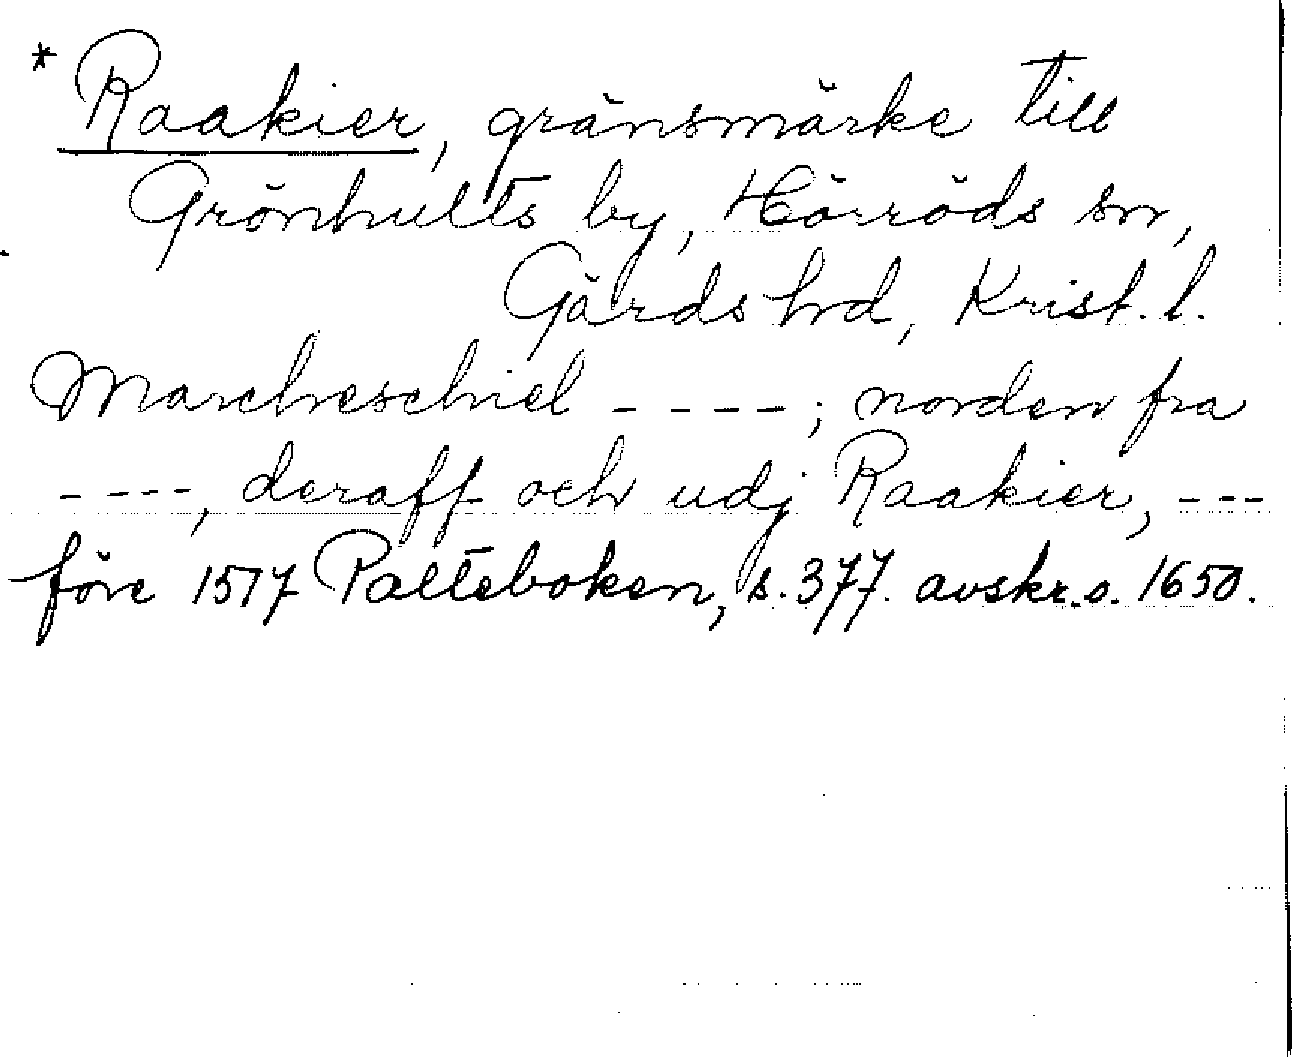 * Raakier, gränsmärke till
Grönhults by, Hörröds sn,
Gärds hd, Krist. l.
Marcheschiel - - - -; norden fra
- - - -, deraff och udj Raakier, - - -
före 1517 Palteboken, s. 377. avskr. o. 1650.